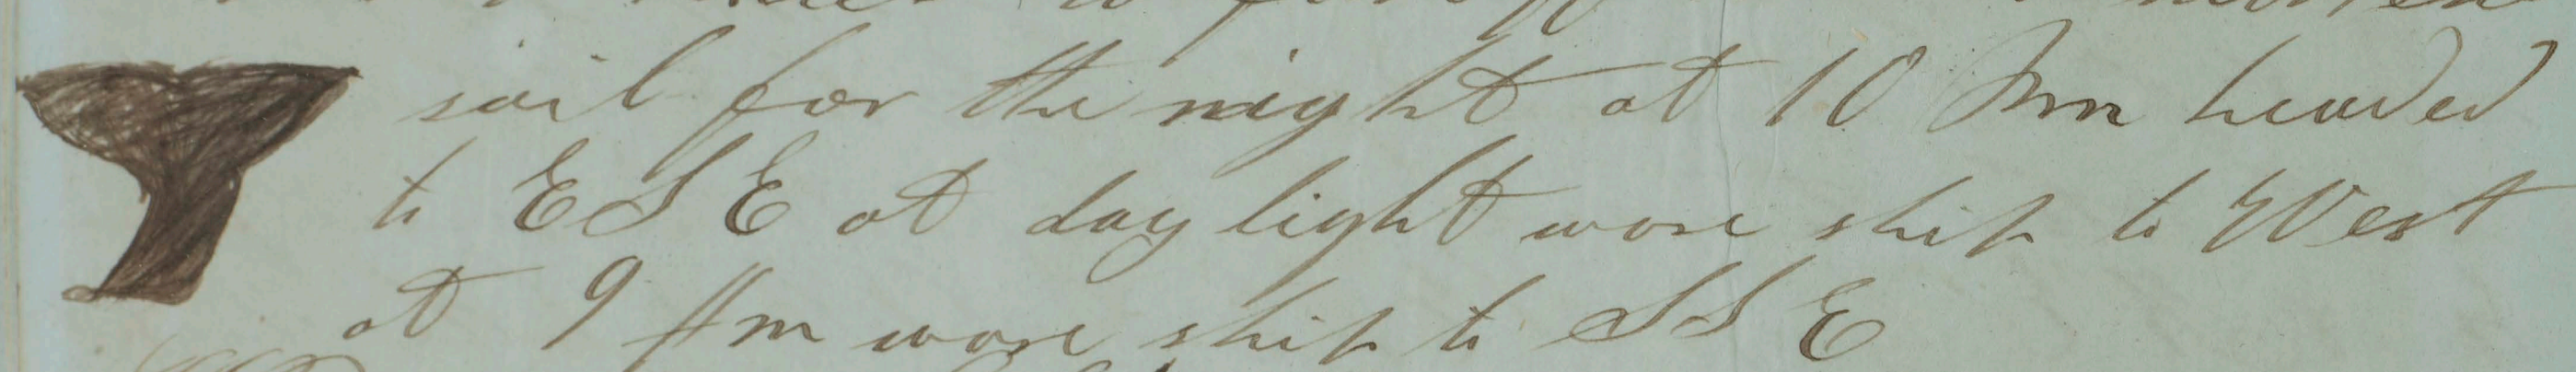 sail for the night at 10 Pm headed
to ESE at day light wore ship to West
at 9 Am wore ship to SSE